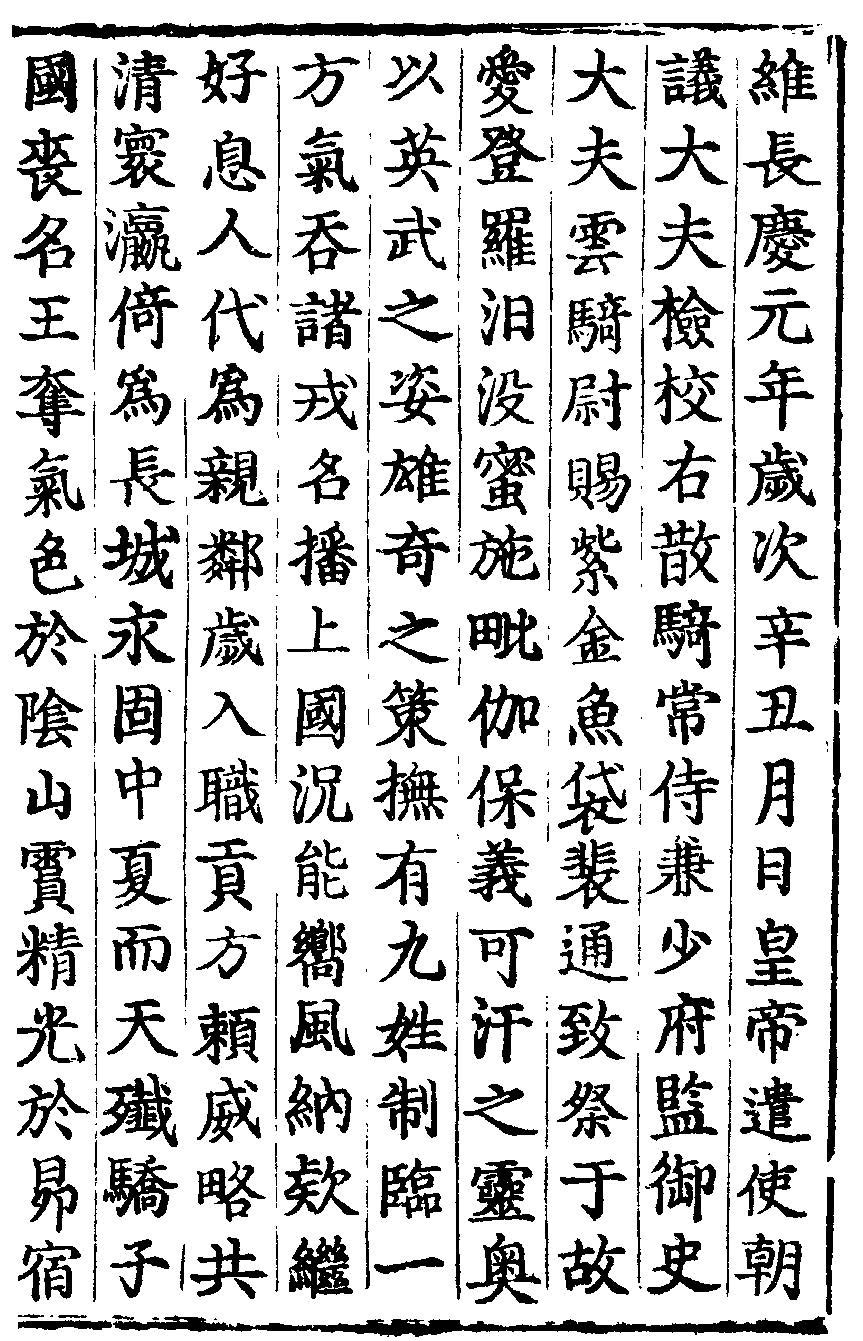 維長慶元年歲次辛丑月日皇帝遣使朝
議大夫檢校右散騎常侍兼少府監御史
大夫雲騎尉賜紫金魚袋裴通致祭于故
愛登羅汨没蜜施毗伽保義可汗之靈奥
以英武之姿雄奇之策撫有九姓制臨一
方氣吞諸戎名播上國況能嚮風納欵繼
好息人代爲親鄰歲入職貢方賴威略共
清寰瀛倚爲長城永固中夏而天殲驕子
國喪名王奪氣色於陰山賈精光於昴宿